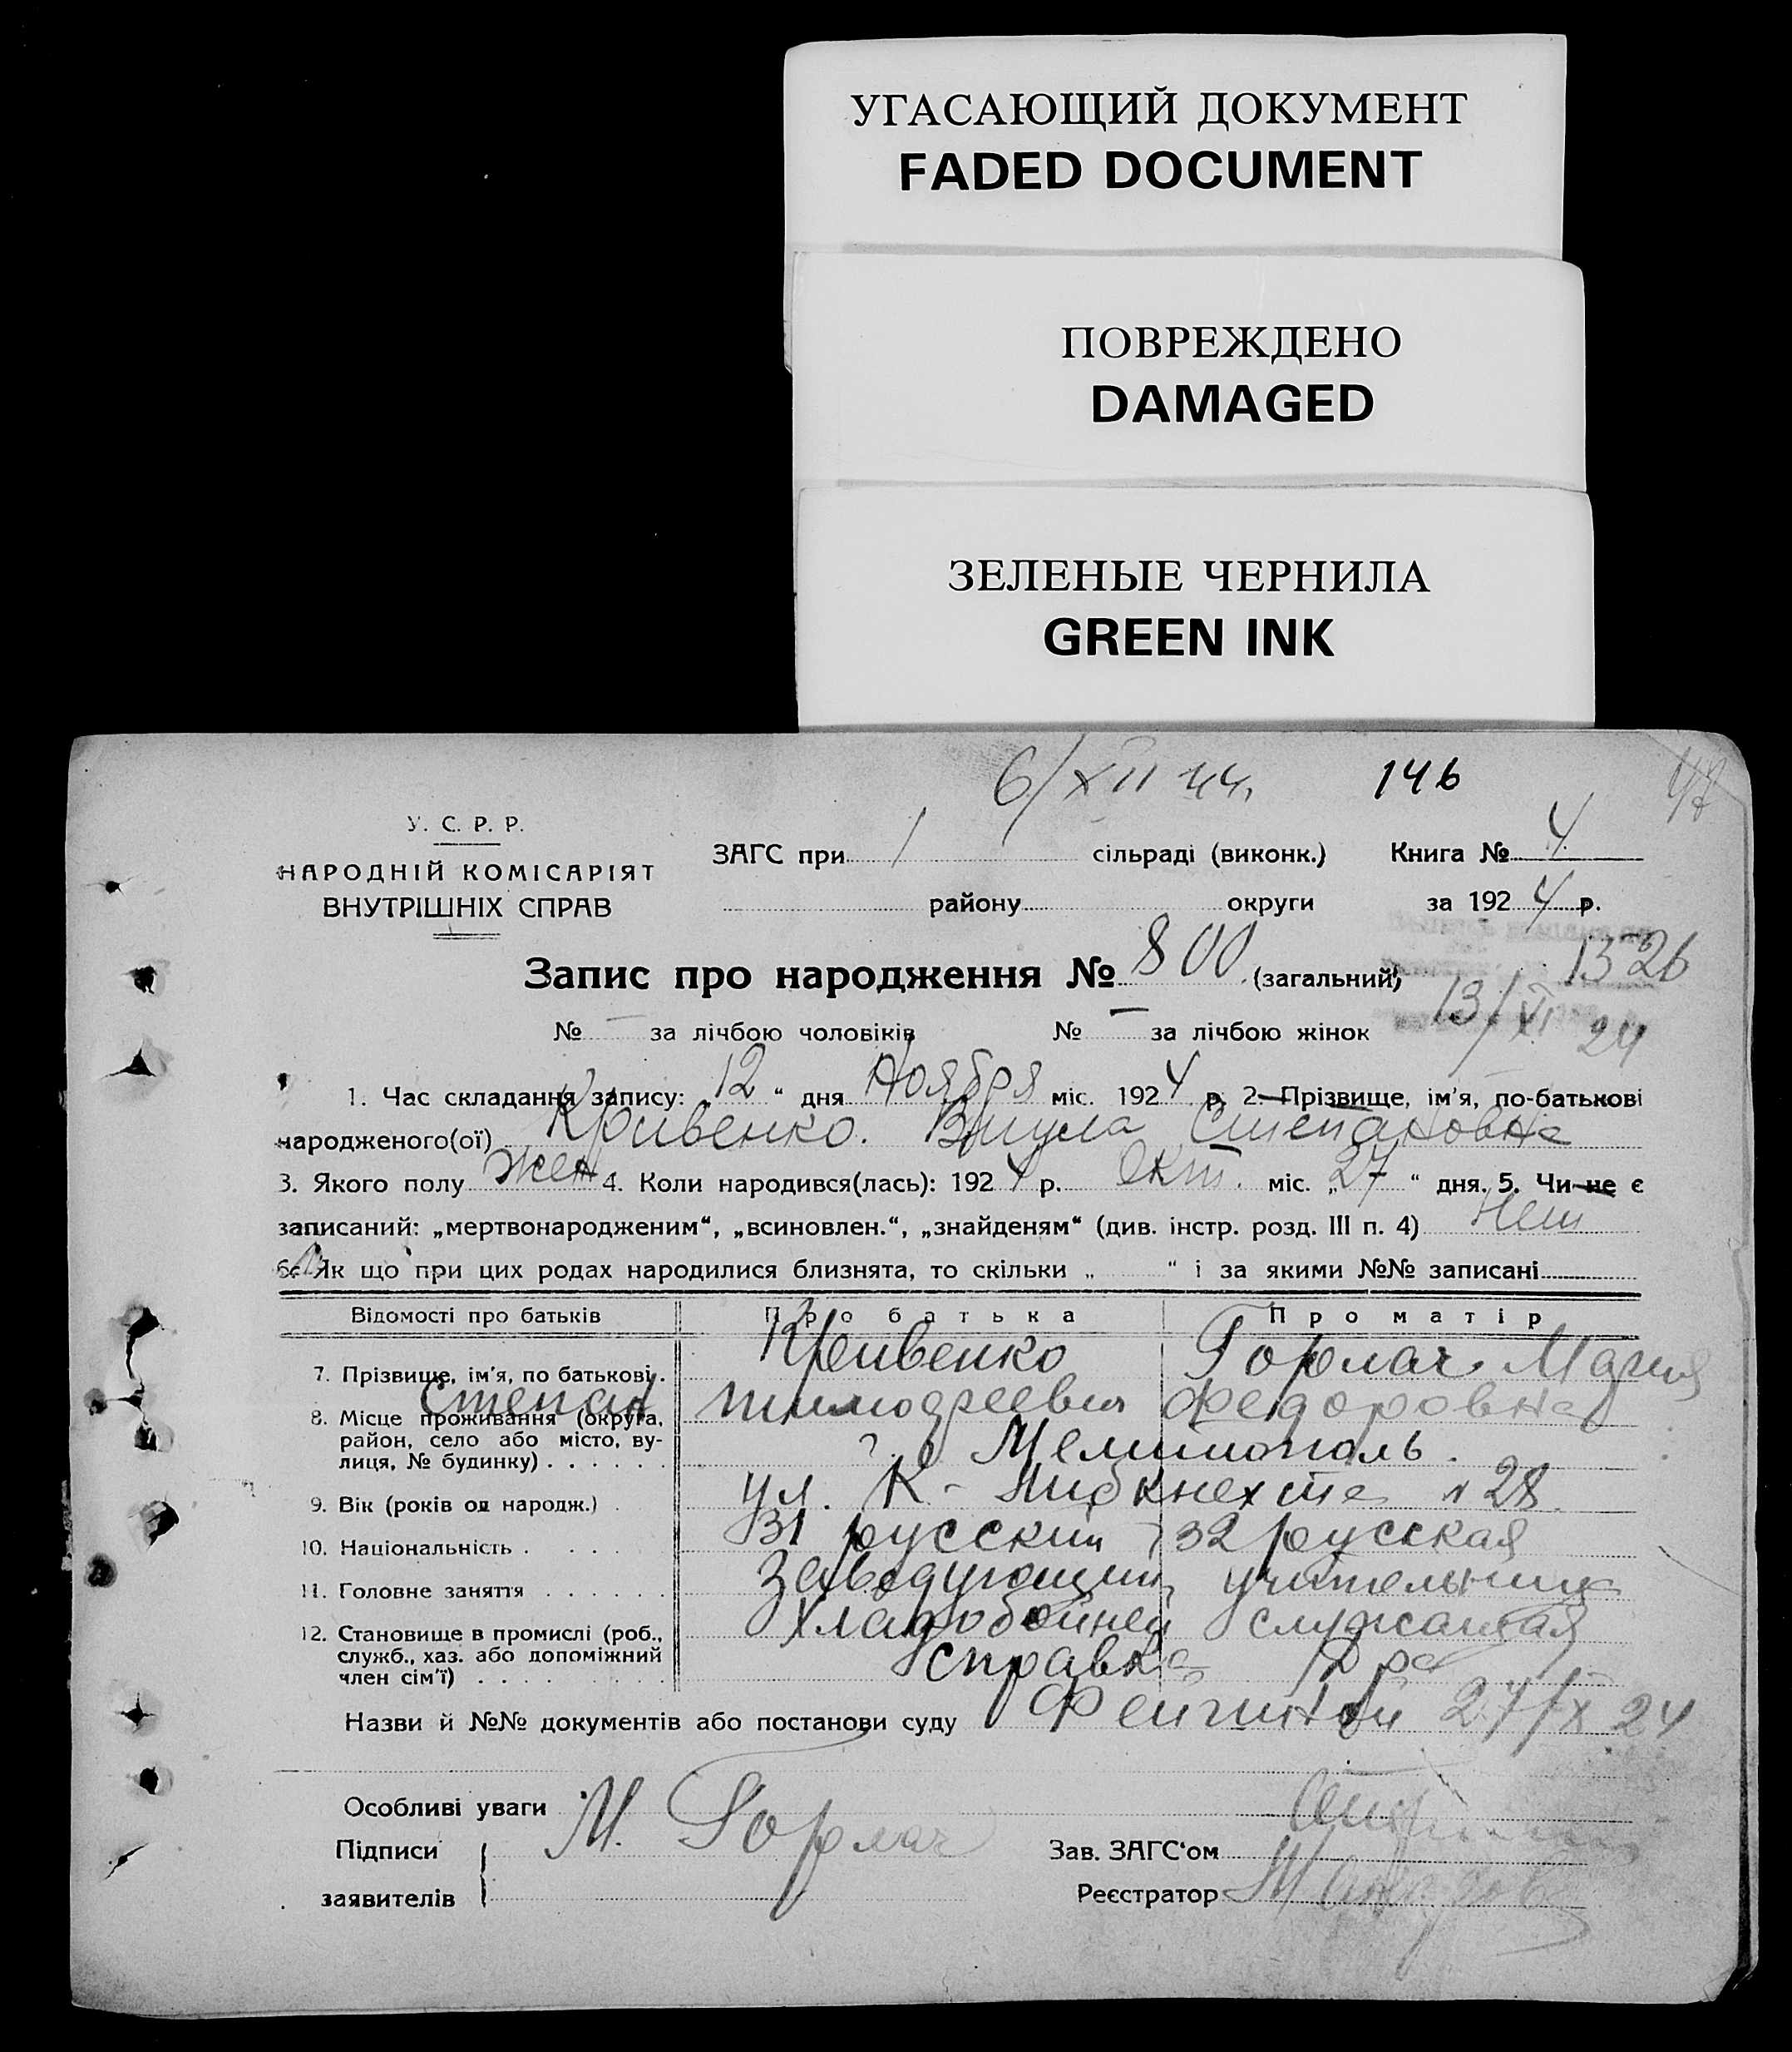 УГАСАЮЩИЙ ДОКУМЕНТ
FADED DOCUMENT
ПОВРЕЖДЕНО
DAMAGED
ЗЕЛЕНЫЕ ЧЕРНИЛА
GREEN INK
6/XII 44. 146
У. С. Р. Р.
НАРОДНІЙ КОМІСАРІЯТ
ВНУТРІШНІХ СПРАВ
ЗАГС при 1 сільраді (виконк.) Книга № 4
району округи за 192 4 р.
Запис про народження № 800 (загальний)
1326
13/XI 24
№ — за лічбою чоловіків № — за лічбою жінок
1. Час складання запису: „ 12 “ дня Ноября міс. 192 4 р. 2. Прізвище, ім'я, по-батькові
народженого(ої) Кривенко. Степановна
3. Якого полу жен 4. Коли народився(лась): 192 4 р. Окт. міс. „ 27 “ дня. 5. Чи не є
записаний: „мертвонародженим“, „всиновлен.“, „знайденям“ (див. інстр. розд. III п. 4) Нет
6. Як що при цих родах народилися близнята, то скільки „ “ і за якими №№ записані
Відомості про батьків Про батька Про матір
7. Прізвище, ім'я, по батькові. Кривенко Горлач Мария
Степан Тимофеевич Федоровна
8. Місце проживання (округа,
район, село або місто, ву-
лиця, № будинку) г. Мелитополь.
9. Вік (років од народж.) ул. К-Либкнехта № 28.
10. Національність 31 русский 32 русская
11. Головне заняття Заведующий учительница
12. Становище в промислі (роб.,
служб., хаз. або допоміжний
член сім'ї) служащая
справка Д-ра
Назви й №№ документів або постанови суду Фейгиной 27/X 24
Особливі уваги
Підписи М. Горлач
заявителів
Зав. ЗАГС'ом
Реєстратор